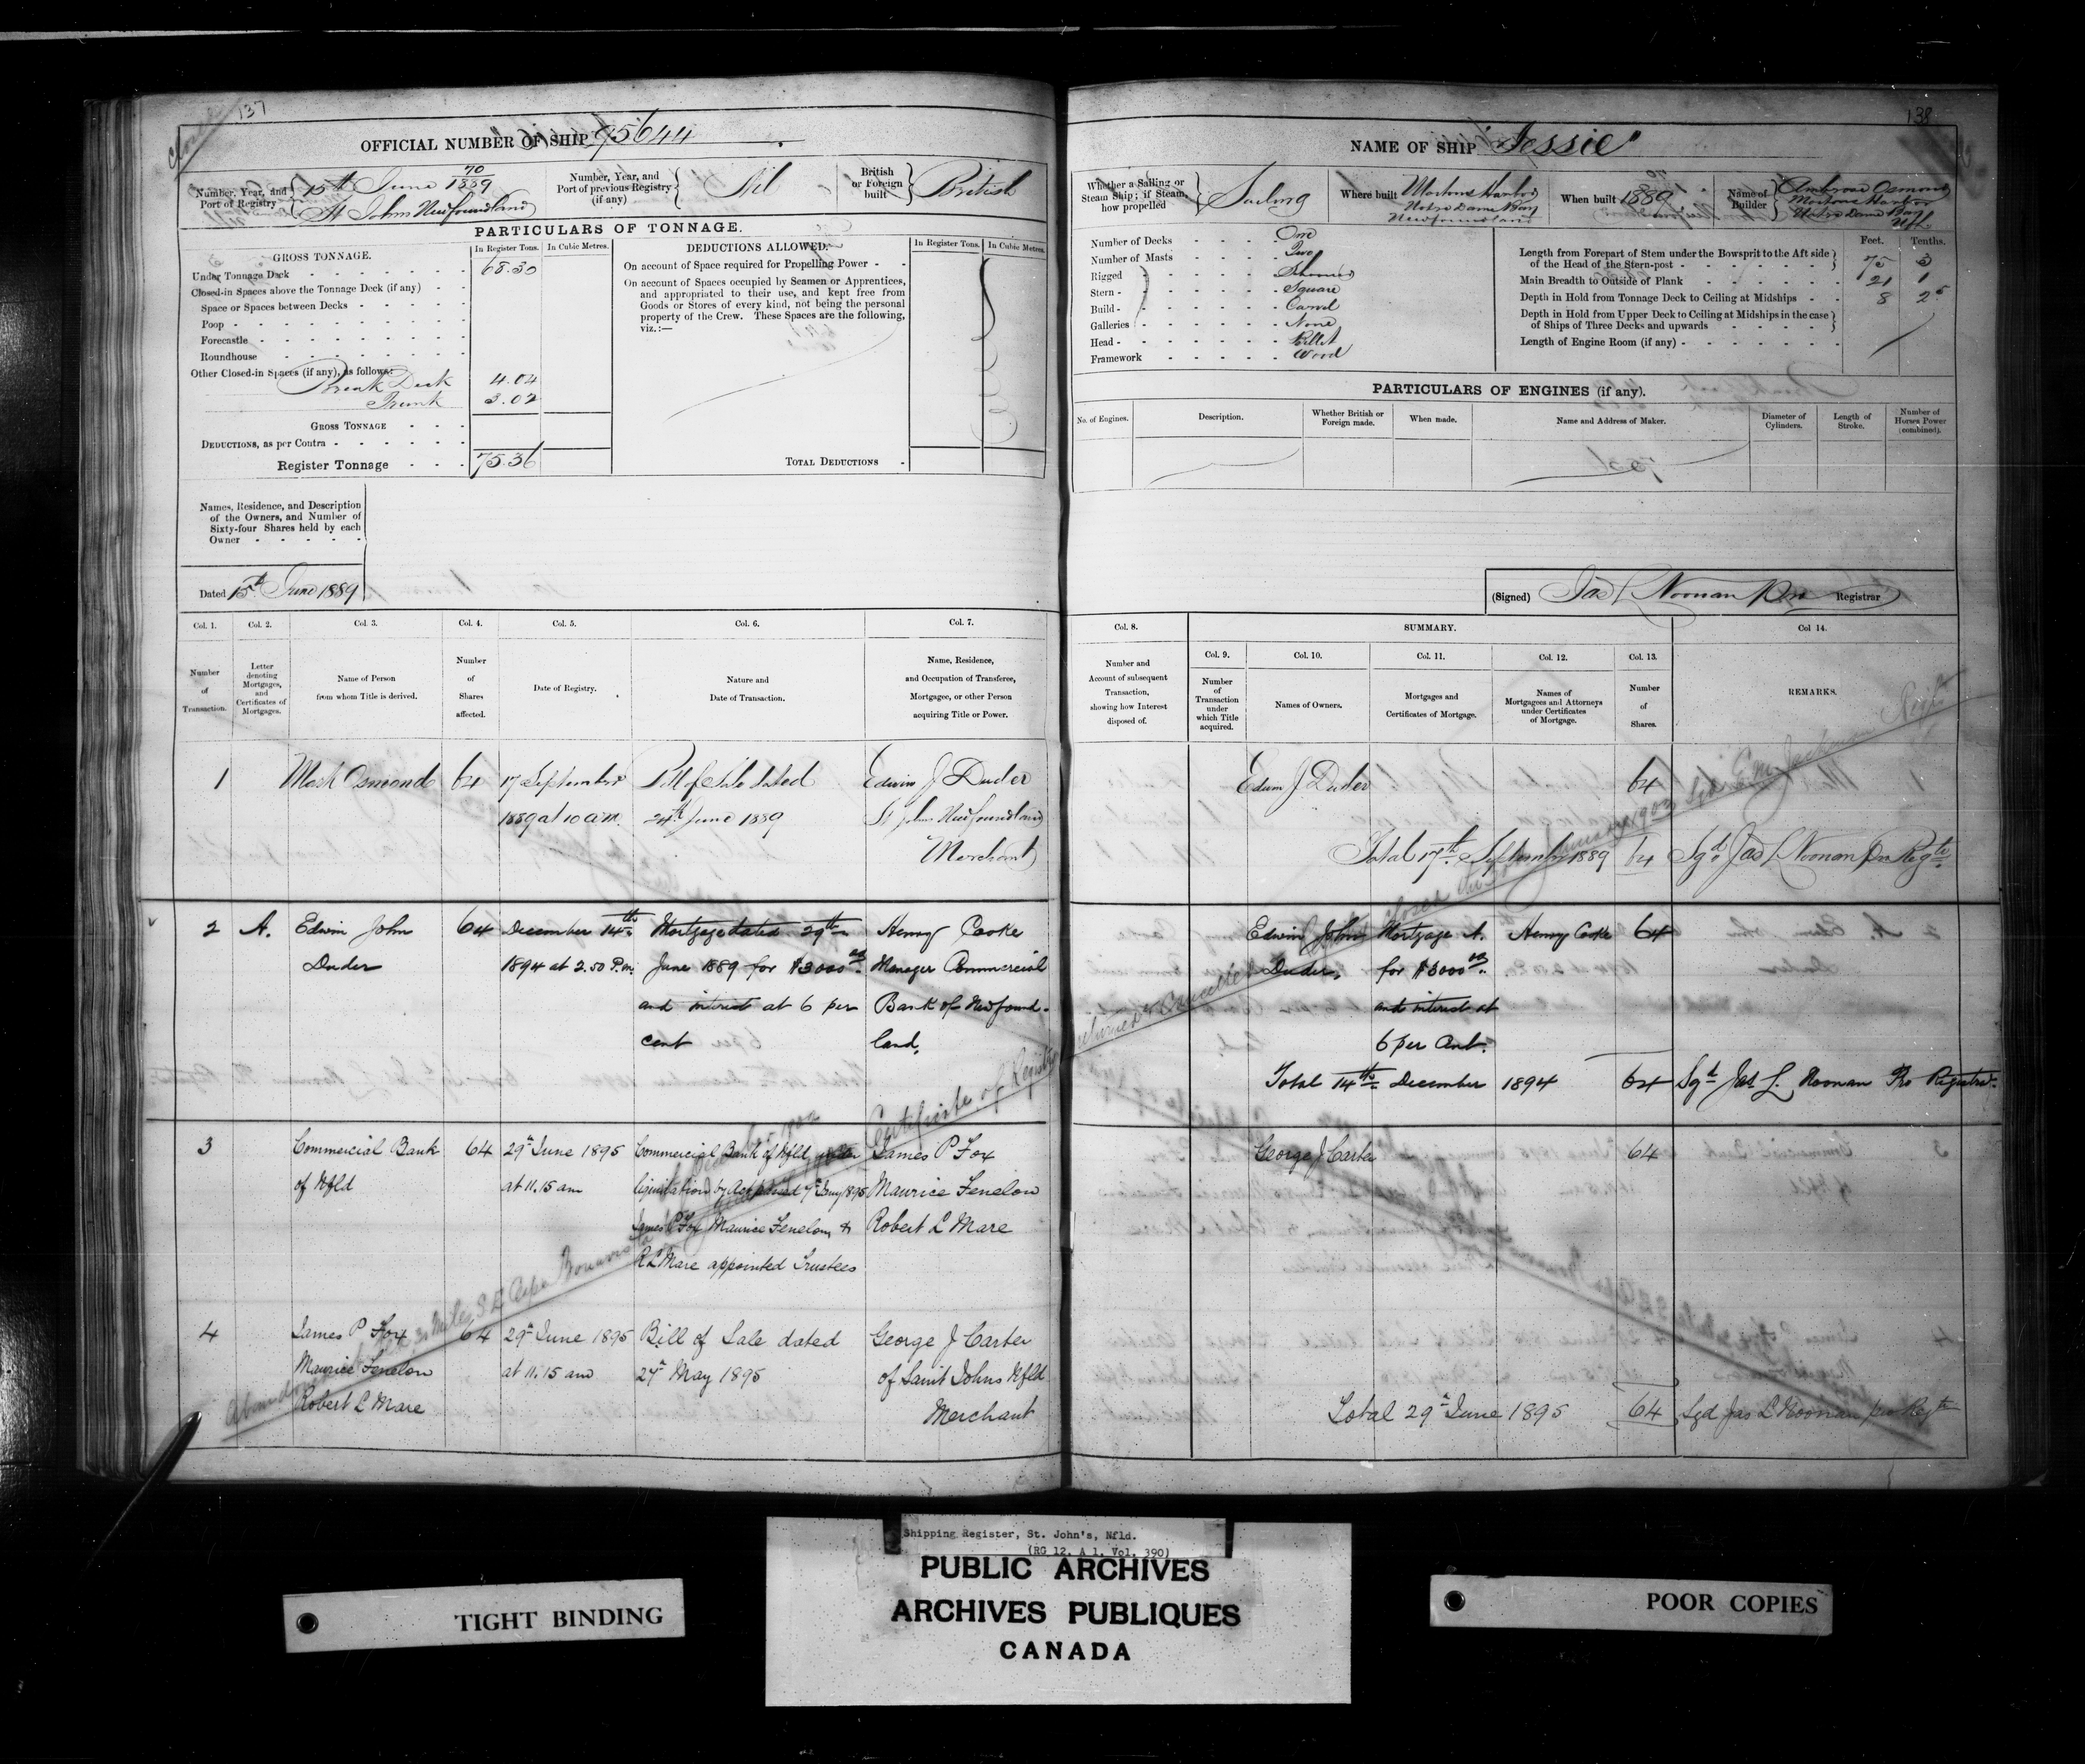 137
Closed
OFFICIAL NUMBER OF SHIP 95644
Number, Year, and Port of Registry 70/1889 15th June St Johns Newfoundland
Number, Year, and Port of previous Registry (if any) Nil
British or Foreign built British
PARTICULARS OF TONNAGE.
GROSS TONNAGE.
In Register Tons.
In Cubic Metres.
Under Tonnage Deck 68.30
Closed-in Spaces above the Tonnage Deck (if any)
Space or Spaces between Decks
Poop
Forecastle
Roundhouse
Other Closed-in Spaces (if any), as follows:
Break Deck 4.04
Trunk 3.02
GROSS TONNAGE
DEDUCTIONS, as per Contra
Register Tonnage 75.36
DEDUCTIONS ALLOWED.
In Register Tons.
In Cubic Metres.
On account of Space required for Propelling Power
On account of Spaces occupied by Seamen or Apprentices,
and appropriated to their use, and kept free from
Goods or Stores of every kind, not being the personal
property of the Crew. These Spaces are the following,
viz.:—
TOTAL DEDUCTIONS
Names, Residence, and Description
of the Owners, and Number of
Sixty-four Shares held by each
Owner
Dated 15th June 1889
Col. 1. Col. 2. Col. 3. Col. 4. Col. 5. Col. 6. Col. 7.
Number of Transaction.
Letter denoting Mortgages, and Certificates of Mortgages.
Name of Person from whom Title is derived.
Number of Shares affected.
Date of Registry.
Nature and Date of Transaction.
Name, Residence, and Occupation of Transferee, Mortgagee, or other Person acquiring Title or Power.
1 Mark Osmond 64 17 September Bill of Sale dated Edwin J Duder
1889 at 10 a.m. 24th June 1889 St Johns Newfoundland
Merchant
2 A. Edwin John 64 December 14th Mortgage dated 29th Henry Cooke
Duder 1894 at 2.50 P.m. June 1889 for $3000 Manager Commercial
and interest at 6 per Bank of Newfound-
cent land.
3 Commercial Bank 64 29th June 1895 Commercial Bank of Nfld James P Fox
of Nfld at 11.15 am liquidation by Act 1895 Maurice Fenelon
James P Fox Maurice Fenelon & Robert L Mare
R L Mare appointed Trustees
4 James P Fox 64 29th June 1895 Bill of Sale dated George J Carter
Maurice Fenelon at 11.15 am 27th May 1895 of Saint Johns Nfld
Robert L Mare Merchant
Miles S.E. Cape Bonavista Certificate of Registry
138
NAME OF SHIP "Jessie"
Whether a Sailing or Steam Ship; if Steam, how propelled Sailing
Where built Mortons Harbor Notre Dame Bay Newfoundland
When built 1889
Name of Builder Ambrose Osmond Mortons Harbor Notre Dame Bay Nfld
Number of Decks One
Number of Masts Two
Rigged Schooner
Stern Square
Build Carvel
Galleries None
Head Billet
Framework Wood
Feet. Tenths.
Length from Forepart of Stem under the Bowsprit to the Aft side of the Head of the Stern-post 75 3
Main Breadth to Outside of Plank 21 1
Depth in Hold from Tonnage Deck to Ceiling at Midships 8 25
Depth in Hold from Upper Deck to Ceiling at Midships in the case of Ships of Three Decks and upwards
Length of Engine Room (if any)
PARTICULARS OF ENGINES (if any).
No. of Engines.
Description.
Whether British or Foreign made.
When made.
Name and Address of Maker.
Diameter of Cylinders.
Length of Stroke.
Number of Horses Power (combined).
(Signed) Jas L Noonan Pro Registrar
Col. 8. SUMMARY. Col 14.
Col. 9. Col. 10. Col. 11. Col. 12. Col. 13.
Number and Account of subsequent Transaction, showing how Interest disposed of.
Number of Transaction under which Title acquired.
Names of Owners.
Mortgages and Certificates of Mortgage.
Names of Mortgagees and Attorneys under Certificates of Mortgage.
Number of Shares.
REMARKS.
Edwin J Duder 64
Total 17th September 1889 64 Sgd Jas L Noonan Pro Regtr
Edwin John Mortgage A. Henry Cooke 64
Duder. for $3000
and interest at
6 per Cent.
Total 14th December 1894 64 Sgd Jas L. Noonan Pro Registrar
George J Carter 64
Total 29th June 1895 64 Sgd Jas L Noonan pro Regtr
Shipping Register, St. John's, Nfld.
(RG 12, A 1, Vol. 390)
PUBLIC ARCHIVES
ARCHIVES PUBLIQUES
CANADA
TIGHT BINDING
POOR COPIES